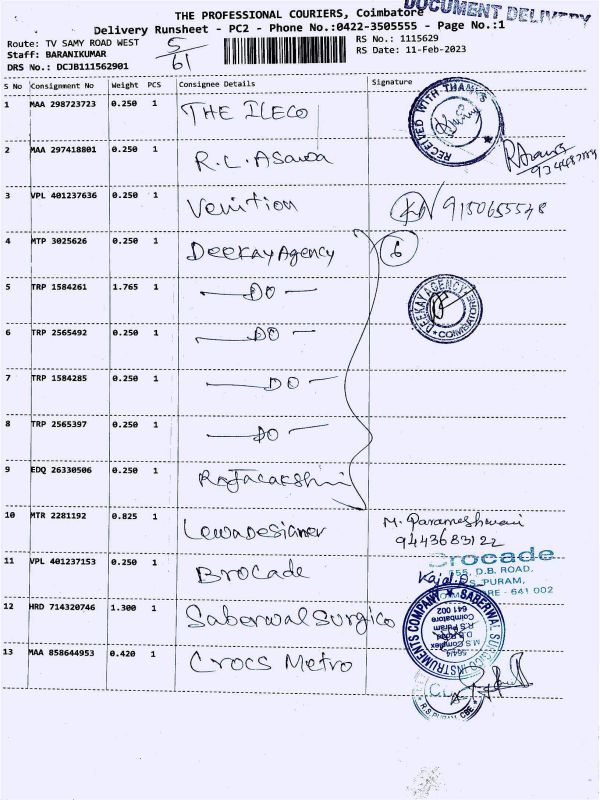 THE PROFESSIONAL COURIERS, Coimbatore
DOCUMENT DELIVERY
Delivery Runsheet - PC2 - Phone No.:0422-3505555 - Page No.:1
Route: TV SAMY ROAD WEST
5/61
RS No.: 1115629
Staff: BARANIKUMAR
RS Date: 11-Feb-2023
DRS No.: DCJB111562901
S No Consignment No Weight PCS Consignee Details Signature
1 MAA 298723723 0.250 1 THE ILECO
RECEIVED WITH THANKS
2 MAA 297418801 0.250 1 R.L. Asawa
3 VPL 401237636 0.250 1 Venition KN 9150655548
4 MTP 3025626 0.250 1 DeeKay Agency 6
5 TRP 1584261 1.765 1 — DO —
DEEKAY AGENCY COIMBATORE
6 TRP 2565492 0.250 1 — DO —
7 TRP 1584285 0.250 1 — DO —
8 TRP 2565397 0.250 1 — DO —
9 EDQ 26330506 0.250 1 Rajalakshmi
10 MTR 2281192 0.825 1 Lewa Designer M. Parameshwari
9443683122
11 VPL 401237153 0.250 1 Brocade
Brocade
555, D.B. ROAD,
Kajal.D
S. PURAM,
RE - 641 002
12 HRD 714320746 1.300 1 Saberwal Surgico
SABERWAL SURGICO INSTRUMENTS COMPANY
564/4
M.S. Complex
D.B. Road
R.S Puram
Coimbatore
641 002
13 MAA 858644953 0.420 1 Crocs Metro
R.S PURAM, CBE